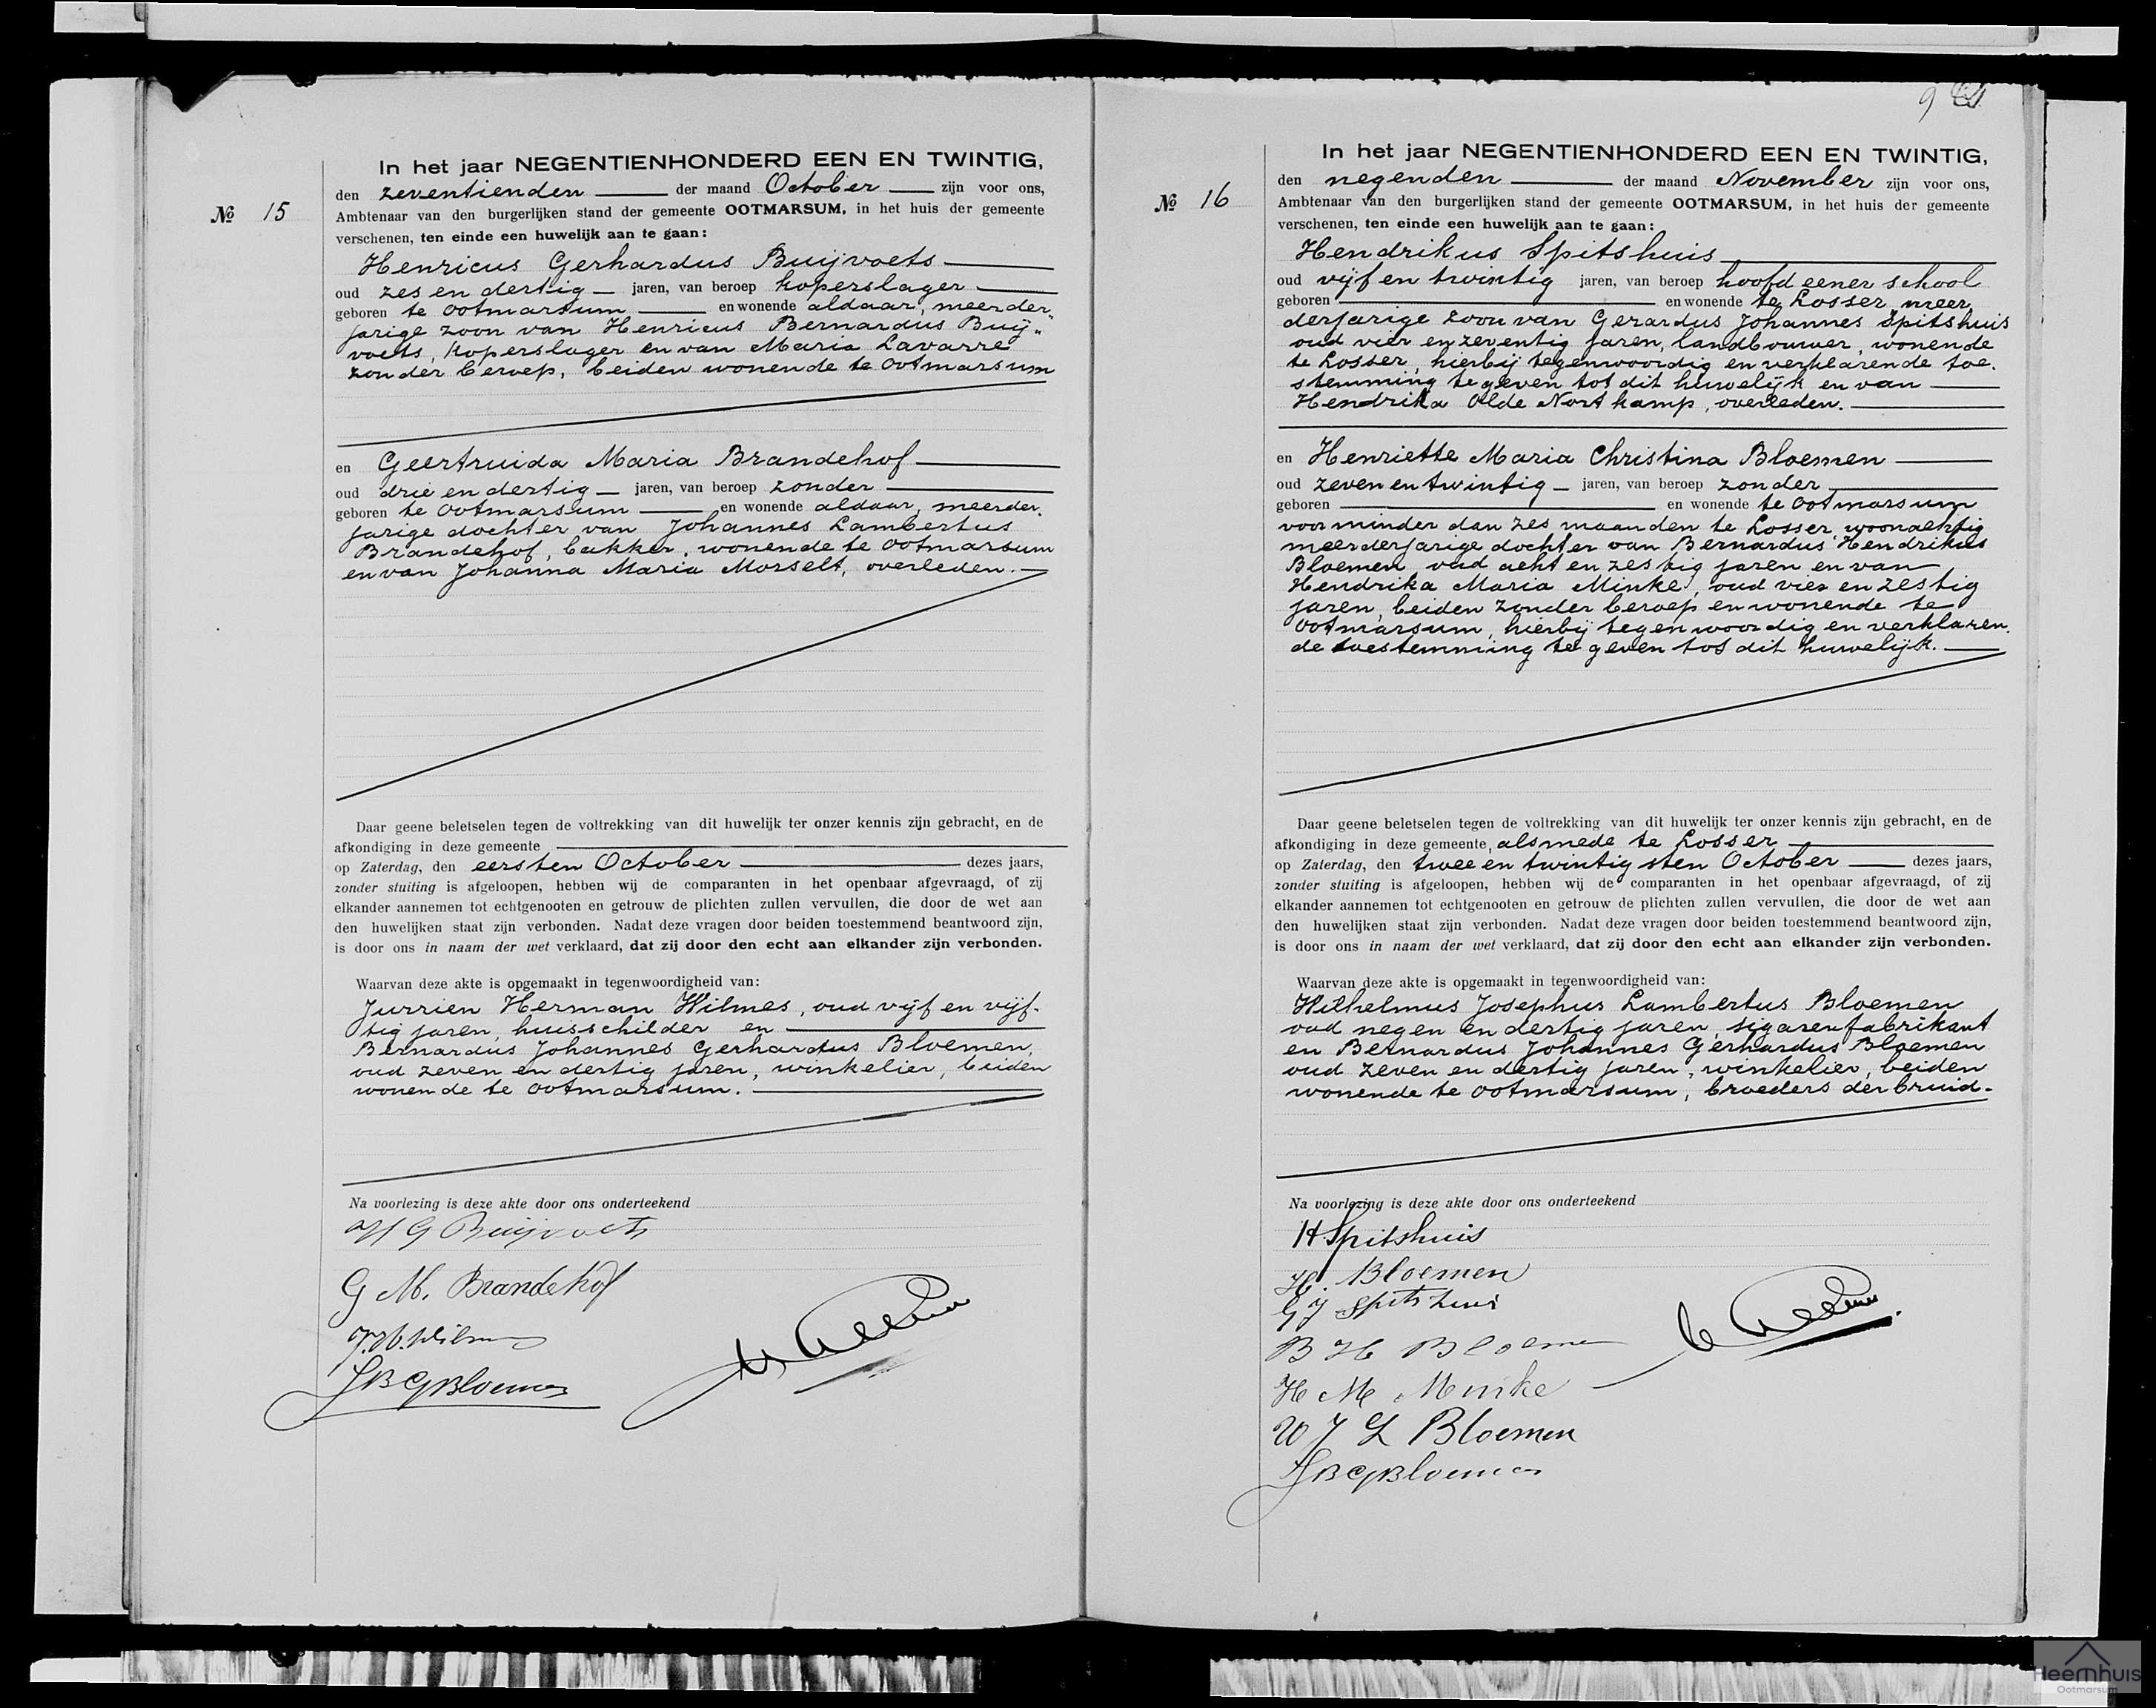 In het jaar NEGENTIENHONDERD EEN EN TWINTIG,
den zeventienden der maand October zijn voor ons,
№ 15
Ambtenaar van den burgerlijken stand der gemeente OOTMARSUM, in het huis der gemeente
verschenen, ten einde een huwelijk aan te gaan:
Henricus Gerhardus Buijvoets
oud zes en dertig jaren, van beroep koperslager
geboren te Ootmarsum en wonende aldaar, meerder-
jarige zoon van Henricus Bernardus Buij-
voets, koperslager en van Maria Lavarre
zonder beroep, beiden wonende te Ootmarsum
en Geertruida Maria Brandehof
oud drie en dertig jaren, van beroep zonder
geboren te Ootmarsum en wonende aldaar, meerder-
jarige dochter van Johannes Lambertus
Brandehof, bakker, wonende te Ootmarsum
en van Johanna Maria Morselt, overleden.
Daar geene beletselen tegen de voltrekking van dit huwelijk ter onzer kennis zijn gebracht, en de
afkondiging in deze gemeente
op Zaterdag, den eersten October dezes jaars,
zonder stuiting is afgeloopen, hebben wij de comparanten in het openbaar afgevraagd, of zij
elkander aannemen tot echtgenooten en getrouw de plichten zullen vervullen, die door de wet aan
den huwelijken staat zijn verbonden. Nadat deze vragen door beiden toestemmend beantwoord zijn,
is door ons in naam der wet verklaard, dat zij door den echt aan elkander zijn verbonden.
Waarvan deze akte is opgemaakt in tegenwoordigheid van:
Jurrien Herman Wilmes, oud vijf en vijf-
tig jaren, huisschilder en
Bernardus Johannes Gerhardus Bloemen,
oud zeven en dertig jaren, winkelier, beiden
wonende te Ootmarsum.
Na voorlezing is deze akte door ons onderteekend
H G Buijvoets
G M. Brandehof
J. H. Wilmes
BJGBloemen
9
In het jaar NEGENTIENHONDERD EEN EN TWINTIG,
den negenden der maand November zijn voor ons,
№ 16
Ambtenaar van den burgerlijken stand der gemeente OOTMARSUM, in het huis der gemeente
verschenen, ten einde een huwelijk aan te gaan:
Hendrikus Spitshuis
oud vijf en twintig jaren, van beroep hoofd eener school
geboren en wonende te Losser, meer
derjarige zoon van Gerardus Johannes Spitshuis
oud vier en zeventig jaren, landbouwer, wonende
te Losser, hierbij tegenwoordig en verklarende toe-
stemming te geven tot dit huwelijk en van
Hendrika Olde Nortkamp, overleden.
en Henriette Maria Christina Bloemen
oud zeven en twintig jaren, van beroep zonder
geboren en wonende te Ootmarsum
voor minder dan zes maanden te Losser woonachtig
meerderjarige dochter van Bernardus Hendrikus
Bloemen, oud acht en zestig jaren en van
Hendrika Maria Minke, oud vier en zestig
jaren, beiden zonder beroep en wonende te
Ootmarsum, hierbij tegenwoordig en verklaren-
de toestemming te geven tot dit huwelijk.
Daar geene beletselen tegen de voltrekking van dit huwelijk ter onzer kennis zijn gebracht, en de
afkondiging in deze gemeente, alsmede te Losser
op Zaterdag, den twee en twintigsten October dezes jaars,
zonder stuiting is afgeloopen, hebben wij de comparanten in het openbaar afgevraagd, of zij
elkander aannemen tot echtgenooten en getrouw de plichten zullen vervullen, die door de wet aan
den huwelijken staat zijn verbonden. Nadat deze vragen door beiden toestemmend beantwoord zijn,
is door ons in naam der wet verklaard, dat zij door den echt aan elkander zijn verbonden.
Waarvan deze akte is opgemaakt in tegenwoordigheid van:
Wilhelmus Josephus Lambertus Bloemen
oud negen en dertig jaren, sigarenfabrikant
en Bernardus Johannes Gerhardus Bloemen
oud zeven en dertig jaren, winkelier, beiden
wonende te Ootmarsum, broeders der bruid.
Na voorlezing is deze akte door ons onderteekend
H Spitshuis
H. Bloemen
G J Spitshuis
B H Bloemen
H M Minke
W J L Bloemen
BJGBloemen
Heemhuis
Ootmarsum